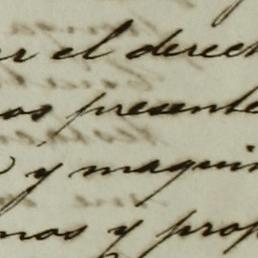 er el derech
os presente
y maquin
mos y prop